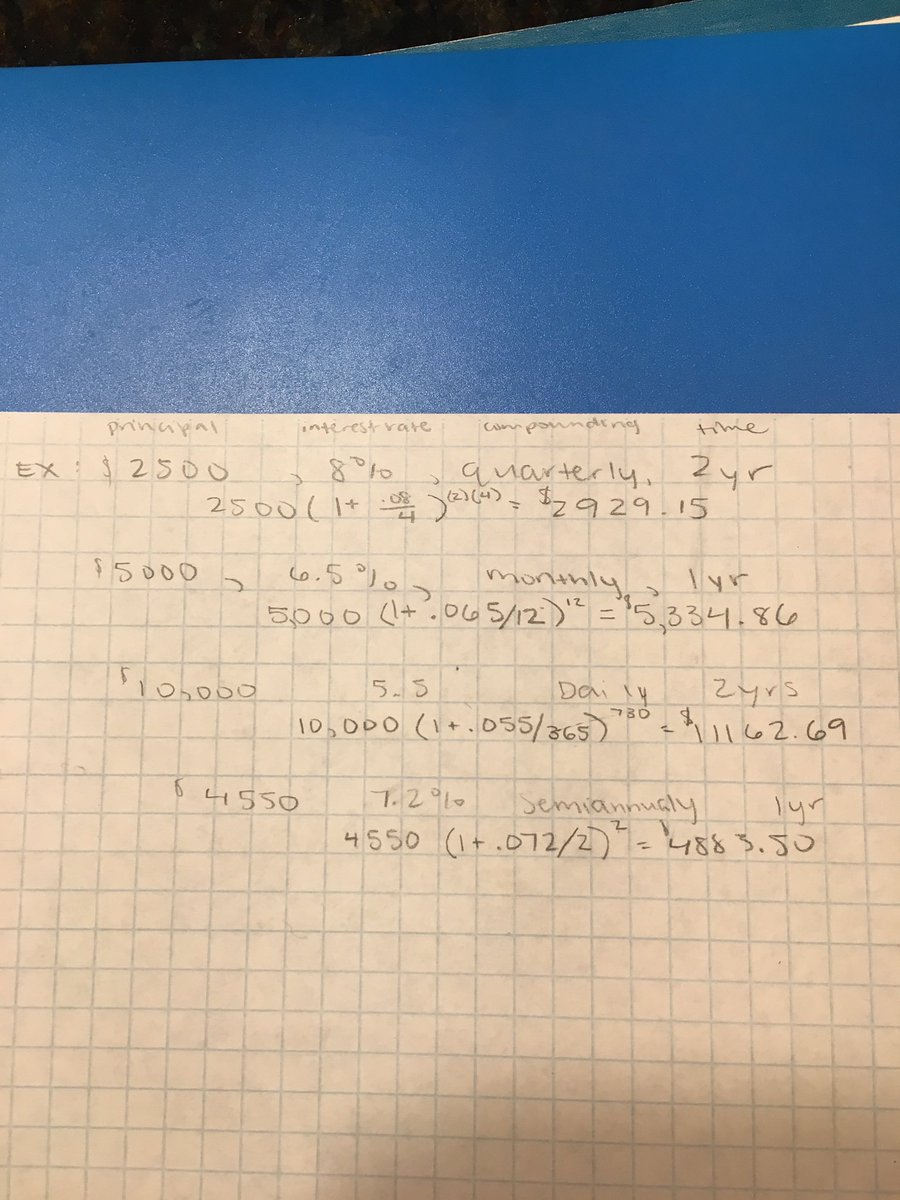 principal interest rate compounding time
EX: $2500, 8%, quarterly, 2yr
2500(1+ .08/4)^(2)(4) = $2929.15
$5000, 6.5%, monthly, 1yr
5,000 (1+.065/12)^12 = $5,334.86
$10,000 5.5 Daily 2yrs
10,000 (1+.055/365)^730 = $11162.69
$4550 7.2% Semiannualy 1yr
4550 (1+.072/2)^2 = $4883.50